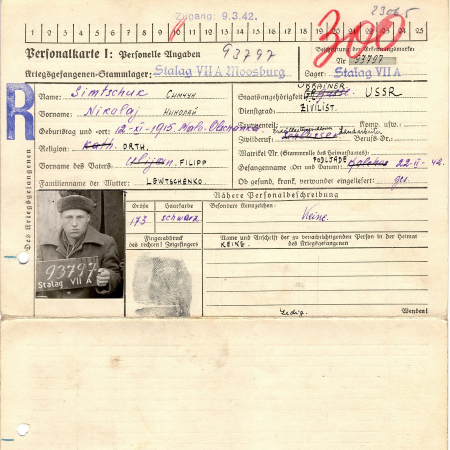 23065
Zugang: 9.3.42.
1 2 3 4 5 6 7 8 9 10 11 12 13 14 15 16 17 18 19 20 21 22 23 24 25
300
Personalkarte I: Personelle Angaben
93797
Beschriftung der Erkennungsmarke
Nr. 93797
Kriegsgefangenen-Stammlager: Stalag VII A Moosburg
Lager: Stalag VII A
R
Des Kriegsgefangenen
Name: Simtschuk Симчук
Vorname: Nikolaj Николай
Geburtstag und -ort: 12-XI-1915
Religion: Kath. ORTH.
Vorname des Vaters: FILIPP
Familienname der Mutter: LEWTSCHENKO
Staatsangehörigkeit: UKRAINER USSR
Dienstgrad: ZIVILIST.
Truppenteil: Komp. usw.:
Zivilberuf: Landarbeiter Berufs-Gr.:
Matrikel Nr. (Stammrolle des Heimatstaates):
Gefangennahme (Ort und Datum): PODLJADE 22-II-42.
Ob gesund, krank, verwundet eingeliefert: ges.
Nähere Personalbeschreibung
Größe
173
Haarfarbe
schwarz
Besondere Kennzeichen:
Keine
Fingerabdruck
des rechten! Zeigefingers
Name und Anschrift der zu benachrichtigenden Person in der Heimat
des Kriegsgefangenen
KEINE.
93797
Stalag VII A
Ledig.
Wenden!